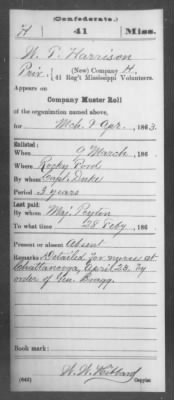 (Confederate.)
H 41 Miss.
W. T. Harrison
Priv., (New) Company H,
41 Reg't Mississippi Volunteers.
Appears on
Company Muster Roll
of the organization named above,
for Mch & Apr, 1863.
Enlisted:
When 9 March, 186
Where Rocky Ford
By whom Capt. Duke
Period 3 years
Last paid:
By whom Maj. Peyton
To what time 28 Feby, 186
Present or absent Absent
Remarks: Detailed for nurse at
Chattanooga, April 23, by
order of Gen. Bragg.
Book mark:
(642)
W. W. Hibbard
Copyist.